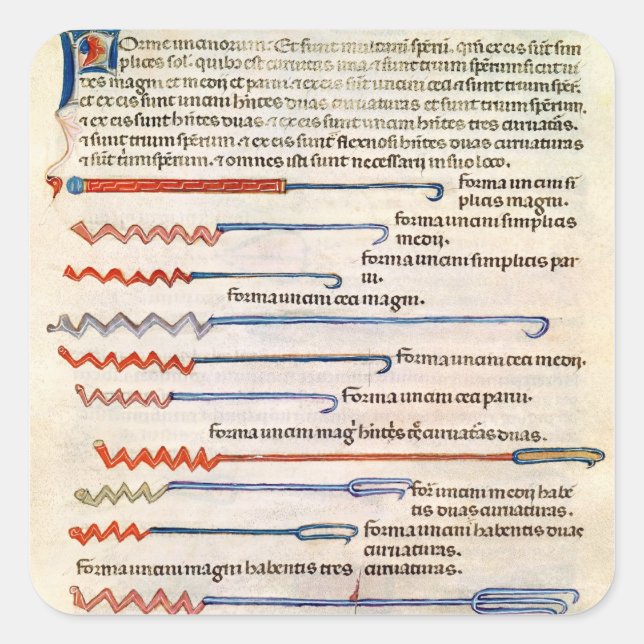 Forme uncinorum. Et sunt multarũ speriũ. qm̃ ex eis sũt sim
plices sol. quibꝰ est curuitas una ⁊ sunt trium sperum sicut ui
res magni et medij et parui. ⁊ ex eis sũt unci ceci ⁊ sunt trium sper.
et ex eis sunt uncini hñtes duas curuaturas et sunt triũ sperum.
⁊ ex eis sunt hñtes duas. ⁊ ex eis sunt uncini hñtes tres curuatas.
⁊ sunt trium sperum. ⁊ ex eis sunt flexnosi hñtes duas curuaturas
⁊ sũt triũ sperum. ⁊ omnes isti sunt necessarij in suo loco.
forma uncini si
plicis magni.
forma uncini simplicis
medij.
forma uncini simplicis par
ui.
forma uncini ceci magni.
forma uncini ceci medij.
forma uncini ceci parui.
forma uncini mag̃ hñtis curuatas duas.
for̃ uncini medij habẽ
tis duas curuaturas.
forma uncini habentis duas
curuaturas.
forma uncini magni habentis tres curuaturas.